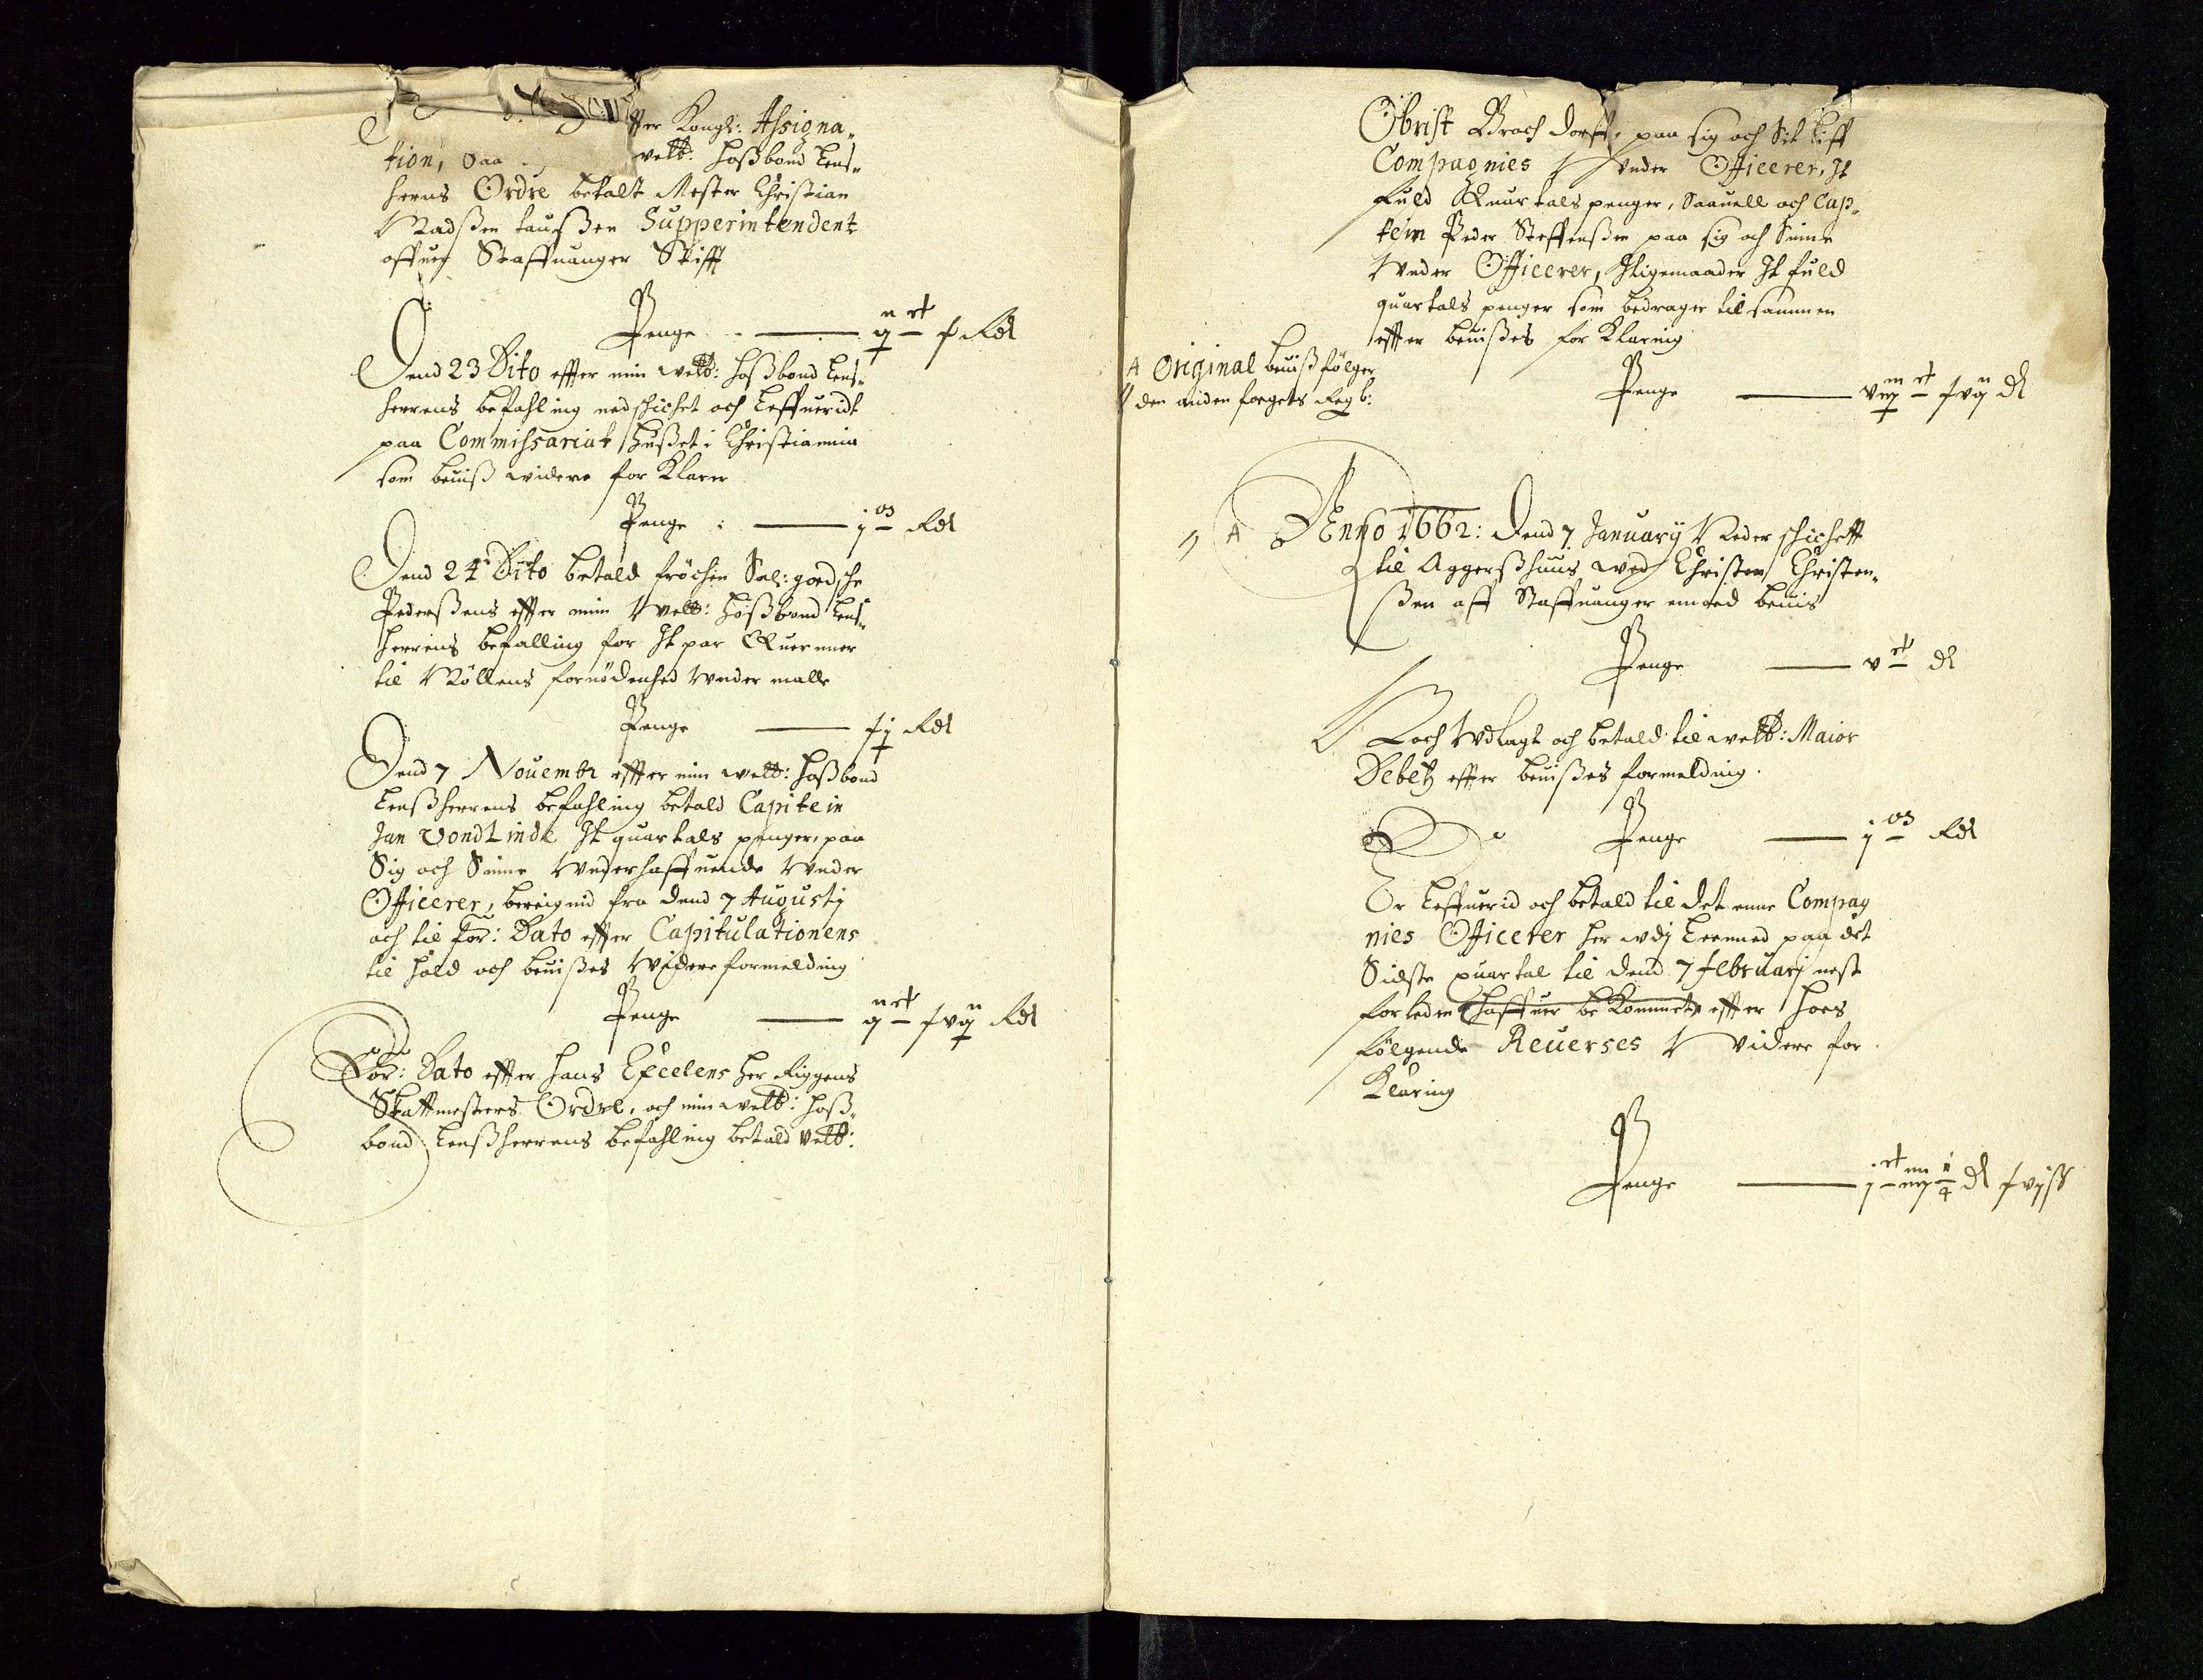 effter Kongl: Assigna-
tion, saa velb: Hoßbond Lens-
herns Ordre betalt Mester Christian
Madsßen taußen Supperintendent
offuer Staffuanger Stifft
Penge ij ct L Rdl
Dend 23 Dito effter min welb: Hoßbond Lens-
herrens befahling nedschichet och Leffueridt
paa Commissariat Hußet i Christiannia
som beuiß widere for Klarer
Penge : j m Rdl
Dend 24 Dito betald fröchen Sal: godsche
Pederßens effter min Welb: Hoßbond Lens-
herrens befalling for It par Querner
til Möllens fornödenhed Wnder malle
Penge Lj Rdl
Dend 7 Nouembr effter min welb: Hoßbond
Lenßherrens befahling betald Capitein
Jan Vond Linde It quartals penger, paa
Sig och Sinne Wnderhaffuende Wnder
Officerer, bereignid fra dend 7 Augustj
och til For: Dato effter Capitulationens
til hold och beuißes Widere formelding
Penge ij ct Lvij Rdl
For: Dato effter Hans Excelens Her Riggens
Skattmesters Ordre, och min welb: Hoß-
bond Lenßherrens befahling betald velb:
Obrist Brochdorff, paa sig och Sit Liff
Compagnies Wnder Officerer, It
fuld Quartals penger, Saauell och Cap-
tein Peder Steffenßen paa sig och Sinne
Wnder Officerer, Ligemaader It fuld
quartals penger som bedrager til sammen
effter beuißes for Klaring
A Original beuiß fölger
den anden forgets Regb:
Penge viij ct Lvij dl
A Anno 1662: Dend 7 January Neder schichett
til Aggerßhuus wed Christen Christen-
ßen aff Staffuanger emod beuis
Penge v ct dl
Noch Wdlagt och betald til welb: Maior
Debetz effter beuißes formelding.
Penge j m Rdl
Er Leffuerid och betald til det enne Compag
nies Officerer her wdj Leenned paa det
Sidste quartal til dend 7 februarj nest
forleden haffuer bekommet effter hoes
fölgende Reuerses Videre for
Klaring
Penge j ct dl